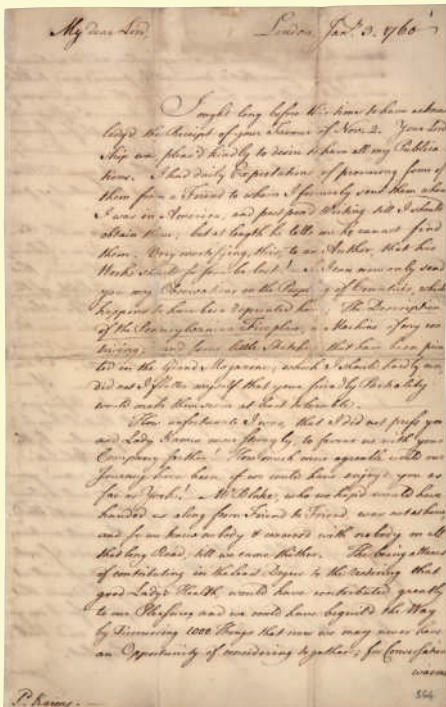 My dear Lord, London, Jan.y 3. 1760
I ought long before this time to have acknow
ledg'd the Receipt of your Favour of Nov. 2. Your Lord
ship was pleas'd kindly to desire to have all my Publica
tions. I had daily Expectations of procuring some of
them from a Friend to whom I formerly sent them when
I was in America, and postpon'd Writing till I should
obtain them; but at length he tells me he cannot find
them. Very mortifying, this, to an Author, that his
Works should so soon be lost! So I can now only send
you my Observations on the Peopling of Countries, which
happens to have been reprinted here; The Description
of the Pennsylvanian Fireplace, a Machine of my con
triving; and some little Sketches that have been prin
ted in the Grand Magazine; which I should hardly own,
did not I flatter myself that your friendly Partiality
would make them seem at least tolerable.
How unfortunate I was, that I did not press you
and Lady Kames more strongly, to favour us with your
Company farther! How much more agreable would our
Journey have been, if we could have enjoy'd you as
far as York! Mr Blake, who we hop'd would have
handed us along from Friend to Friend, was not at home
and so we knew nobody & convers'd with nobody on all
that long Road, till we came thither. The being a Means
of contributing in the least Degree to the restoring that
good Lady's Health, would have contributed greatly
to our Pleasures, and we could have beguil'd the Way
by Discoursing 1000 Things that now we may never have
an Opportunity of considering together; for Conversation
warms
Ld. Kames.
544